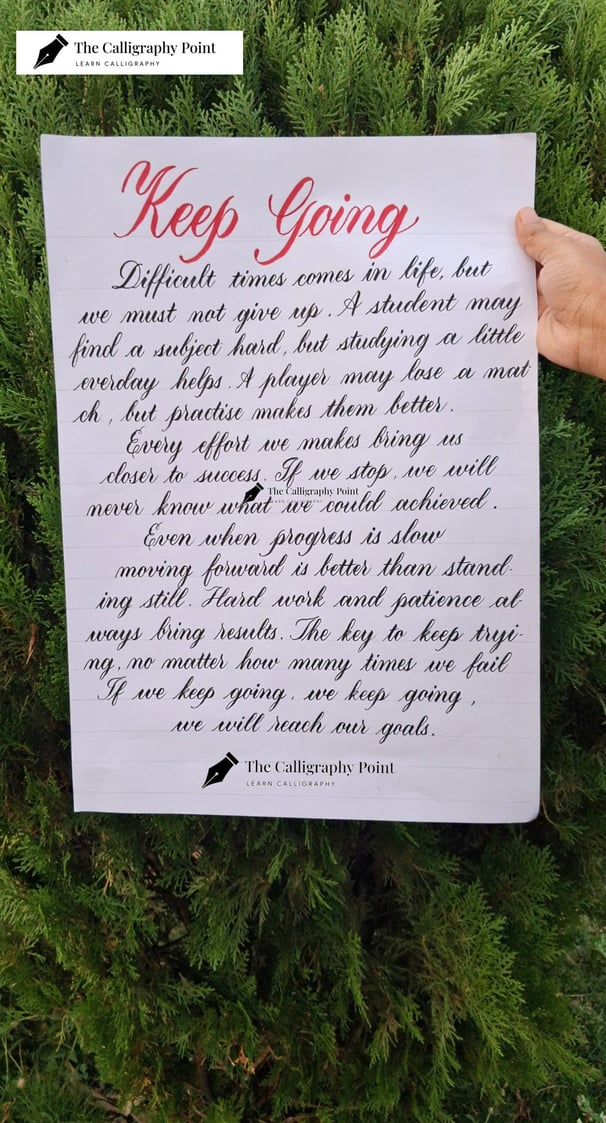 The Calligraphy Point
LEARN CALLIGRAPHY
Keep Going
Difficult times comes in life, but
we must not give up. A student may
find a subject hard, but studying a little
everday helps. A player may lose a mat
ch, but practise makes them better.
Every effort we makes bring us
closer to success. If we stop, we will
The Calligraphy Point
LEARN CALLIGRAPHY
never know what we could achieved.
Even when progress is slow
moving forward is better than stand-
ing still. Hard work and patience al-
ways bring results. The key to keep tryi-
ng, no matter how many times we fail
If we keep going, we keep going,
we will reach our goals.
The Calligraphy Point
LEARN CALLIGRAPHY